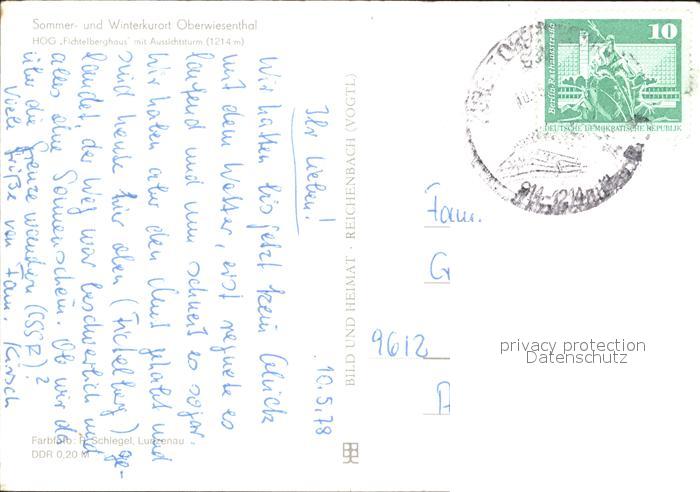 Sommer- und Winterkurort Oberwiesenthal
HOG „Fichtelberghaus" mit Aussichtsturm (1214 m)
10.5.78
Ihr Lieben!
Wir hatten bis jetzt kein Glück
mit dem Wetter, erst regnete es
laufend und nun schneit es sogar.
Wir haben aber den Mut gehabt und
sind heute hier oben (Fichtelberg) ge-
landet, der Weg war beschwerlich und
alles ohne Sonnenschein. Ob wir da
über die Grenze wandern (CSSR)?
Viele Grüße von Fam. Kirsch
BILD UND HEIMAT · REICHENBACH (VOGTL)
Farbfoto: H. Schlegel, Lunzenau
DDR 0,20 M
10
Berlin-Rathausstraße
DEUTSCHE DEMOKRATISCHE REPUBLIK
Fam.
G
9612
privacy protection
Datenschutz